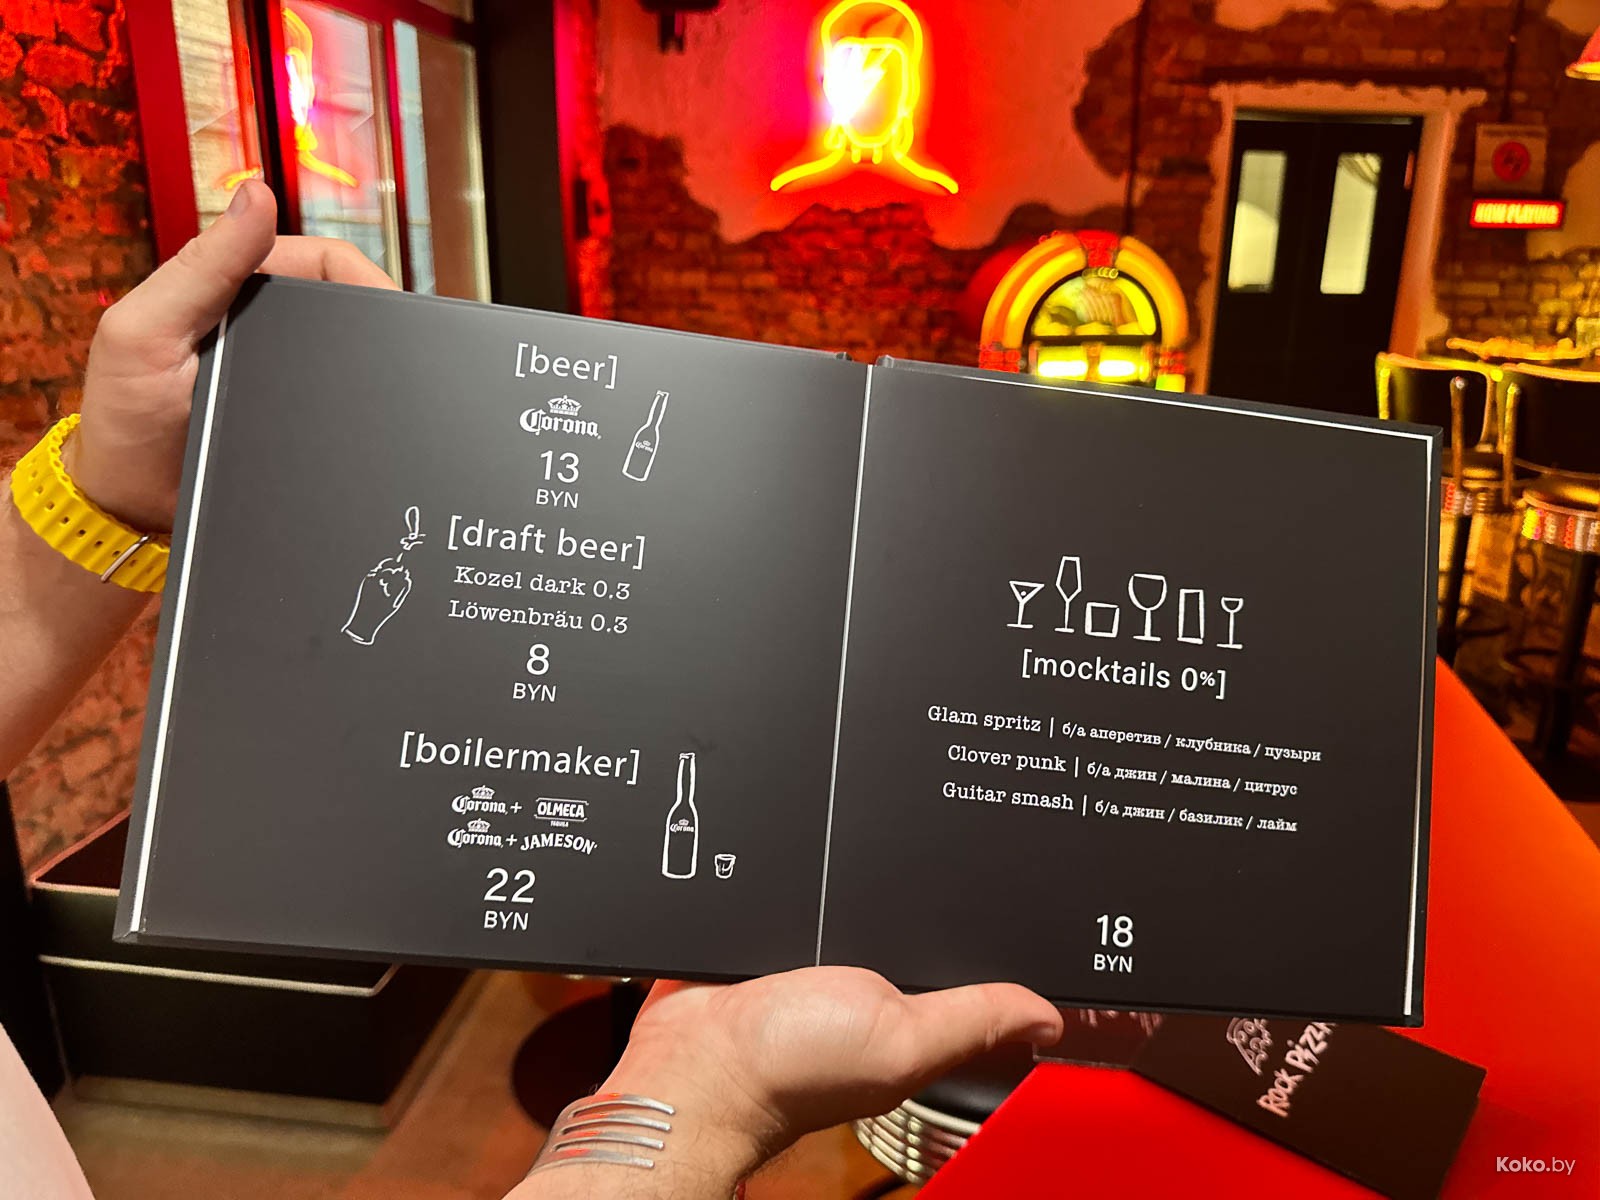 [beer]
Corona
Corona
13
BYN
[draft beer]
Kozel dark 0.3
Löwenbräu 0.3
8
BYN
[boilermaker]
Corona + OLMECA
TEQUILA
Corona + JAMESON
Corona
22
BYN
[mocktails 0%]
Glam spritz | б/а аперетив / клубника / пузыри
Clover punk | б/а джин / малина / цитрус
Guitar smash | б/а джин / базилик / лайм
18
BYN
NOW PLAYING
Rock Pizza
Koko.by